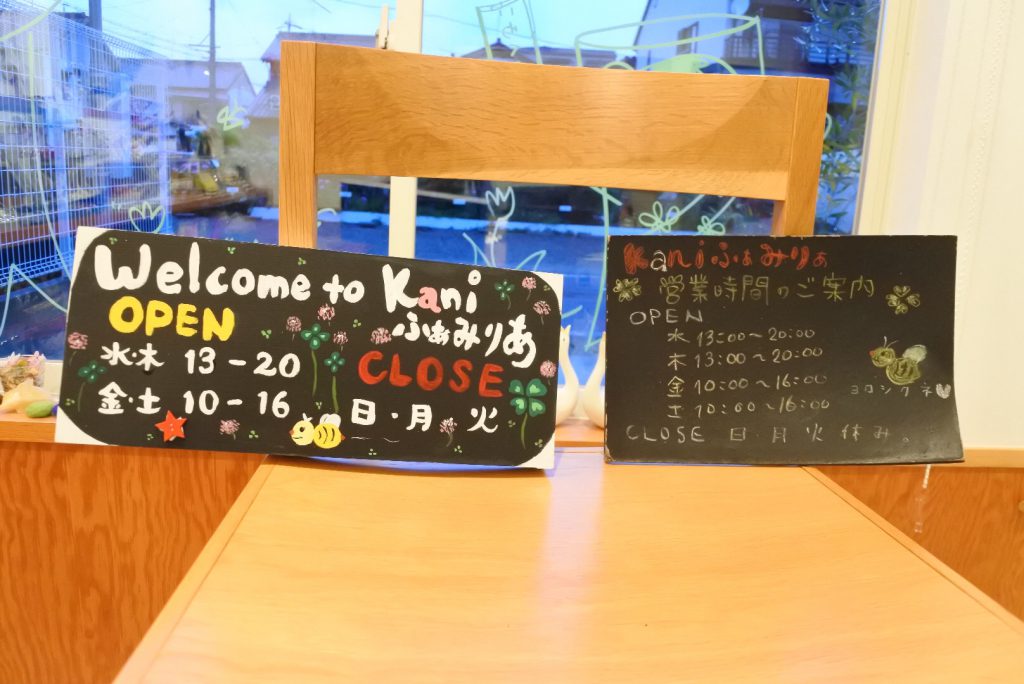 Welcome to Kani
ふぁみりあ
OPEN
水・木 13-20
金・土 10-16
CLOSE
日・月 火
Kaniふぁみりぁ
営業時間のご案内
OPEN
水 13:00~20:00
木 13:00~20:00
金 10:00~16:00
土 10:00~16:00
ヨロシクネ
CLOSE 日・月 火 休み。